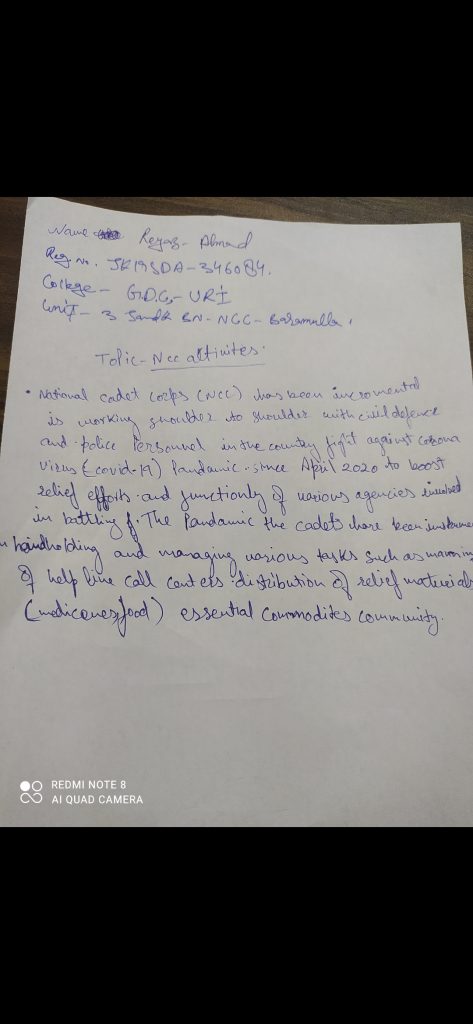 Name Reyaz - Ahmad
Reg. No. JK19SDA-346084.
College - G.D.C, - URI
Unit - 3 Jandk BN - NCC - Baramulla.
Topic - Ncc altinites.
• National cadet coclps (NCC) has been incromental
is working shoulder to shoulder with civil defence
and police Personnel in the country fight against corona
virus (covid-19) Pandamic. since April 2020 to boost
relief efforts and functionly of various agencies involved
in battling of. The Pandamic the cadets have been instrume
n handholding and managing various tasks such as manning
of help line call centers distribution of relief materials
(medicones, food) essential commodites community.
REDMI NOTE 8
AI QUAD CAMERA